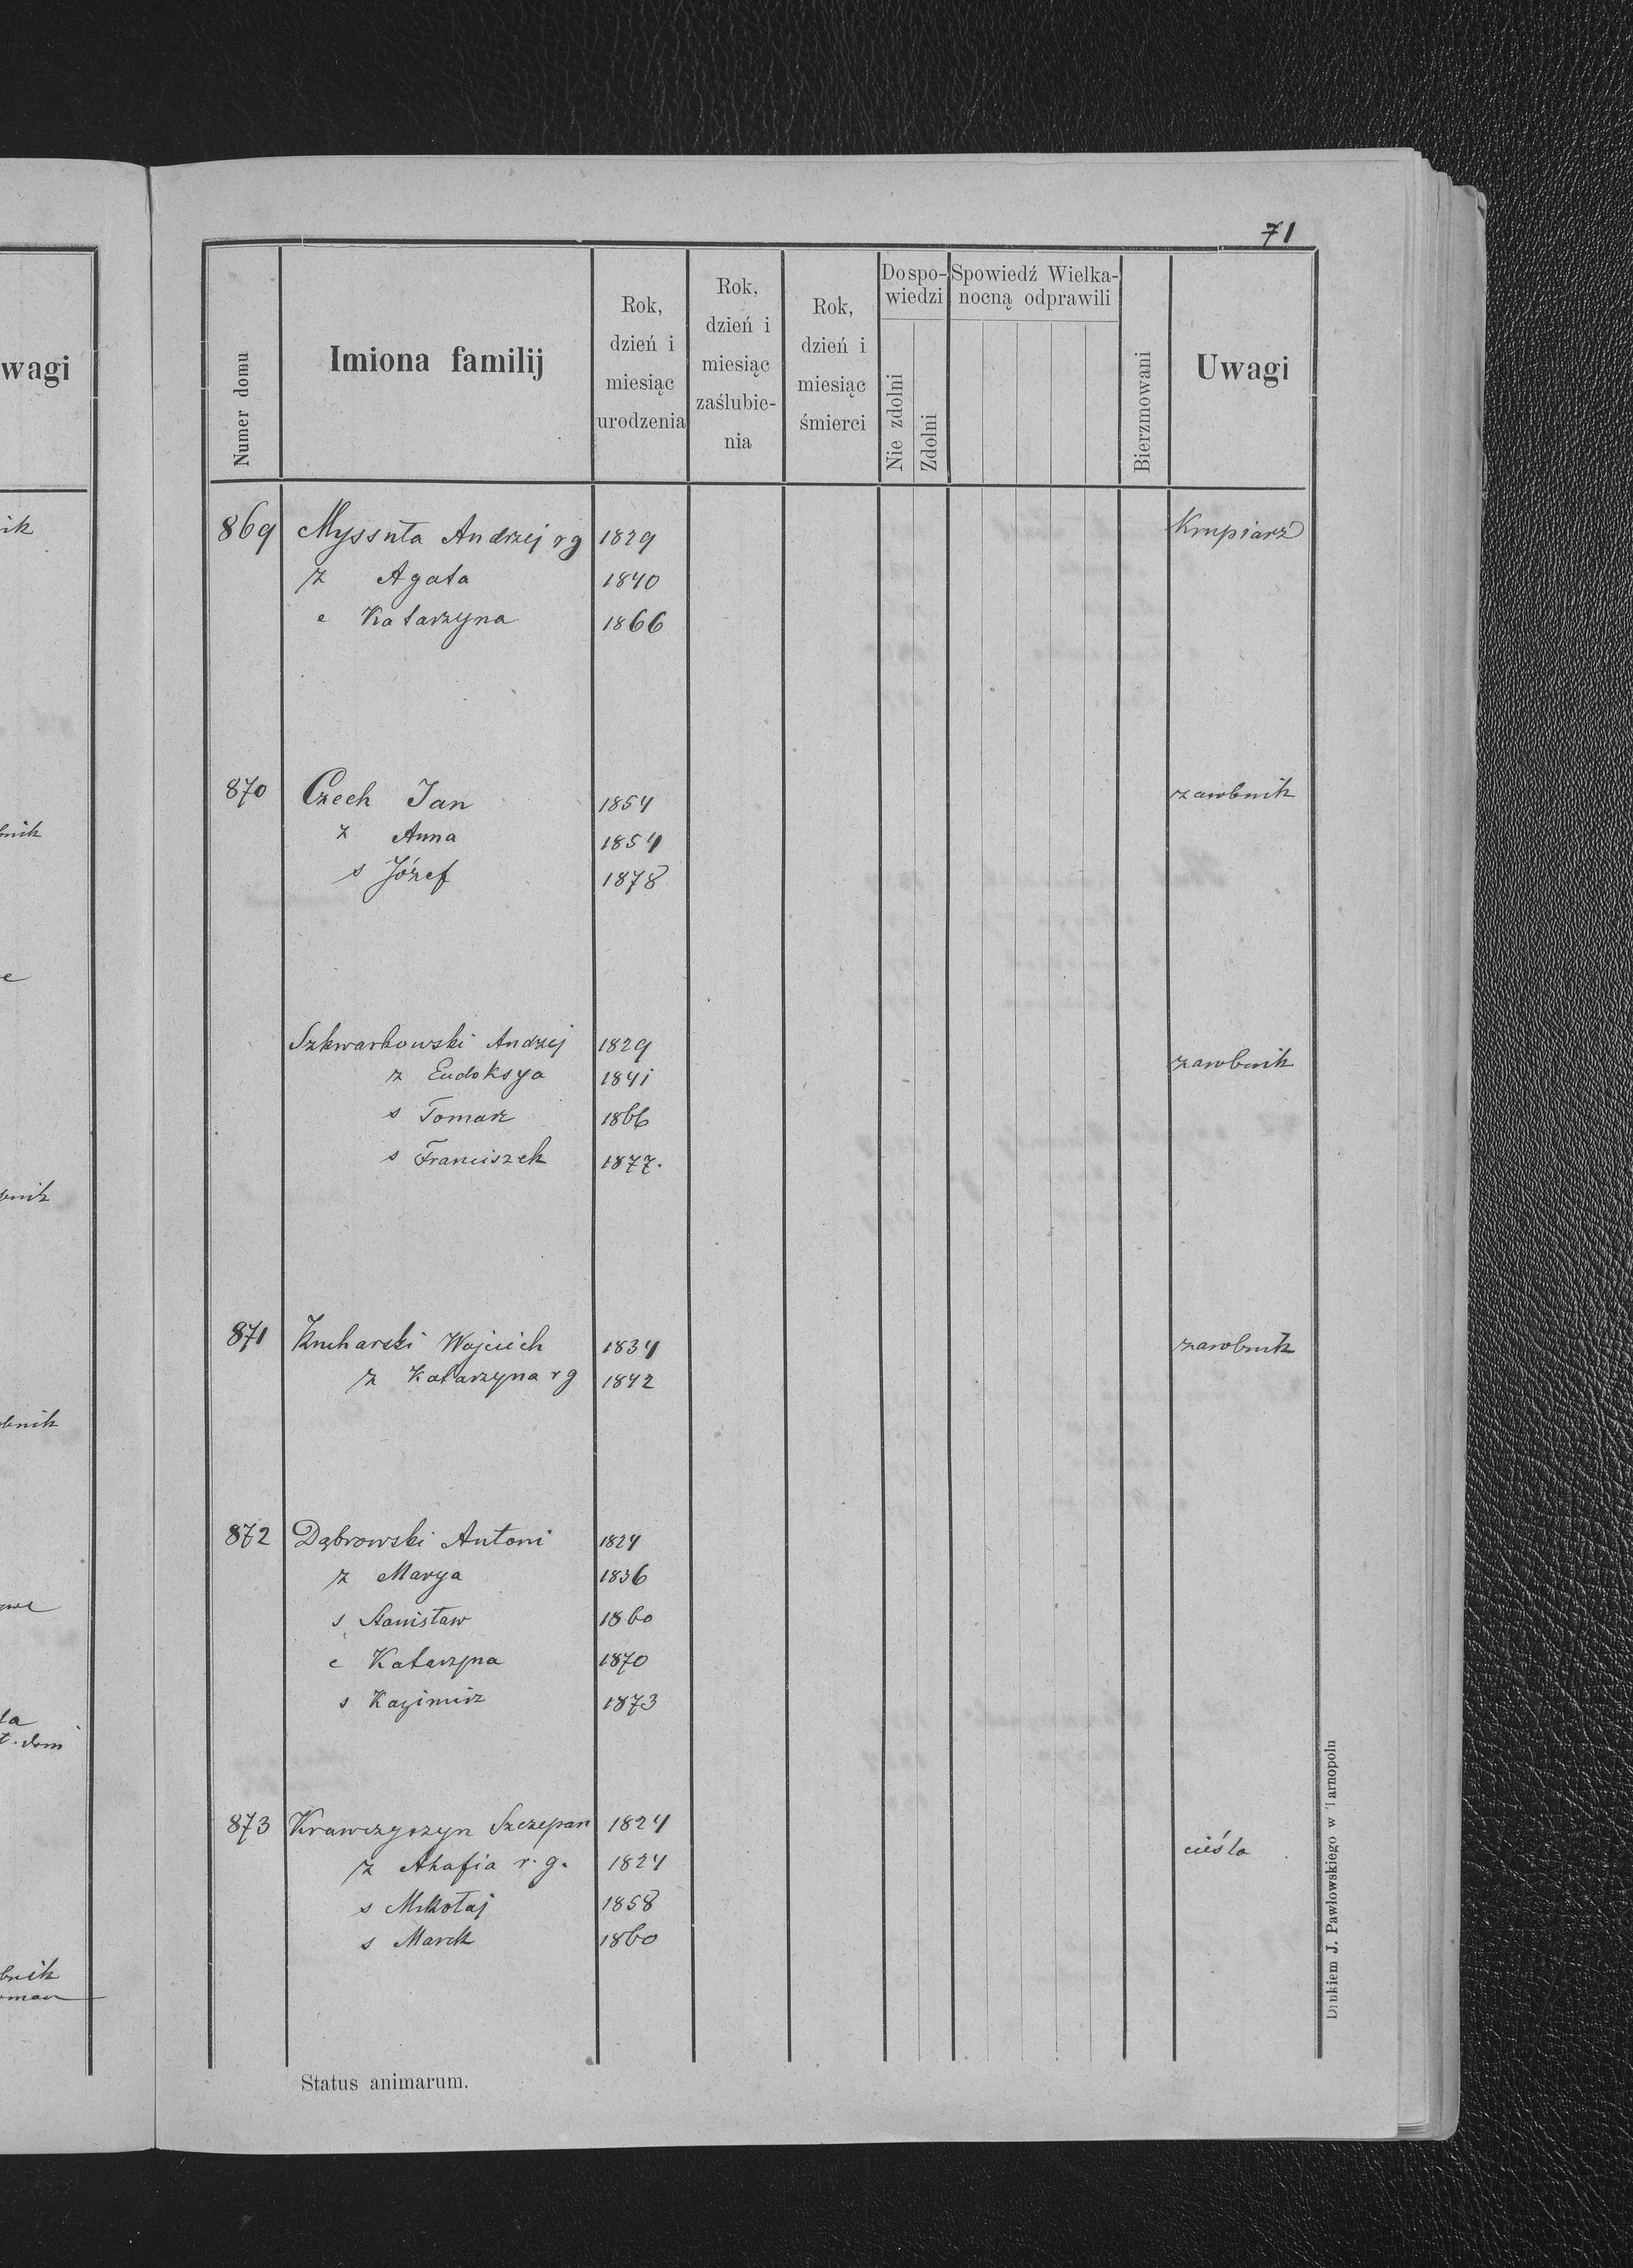 71
wagi
Numer domu
Imiona familij
Rok, dzień i miesiąc urodzenia
Rok, dzień i miesiąc zaślubie-nia
Rok, dzień i miesiąc śmierci
Do spo-wiedzi
Nie zdolni
Zdolni
Spowiedź Wielka-nocną odprawili
Bierzmowani
Uwagi
869 Myssuta Andrzej rg 1829 Krupiarz
z Agata 1840
c Katarzyna 1866
870 Czech Jan 1854 zarobnik
z Anna 1854
s Józef 1878
Szkwarkowski Andrzej 1829 zarobnik
z Eudoksya 1841
s Tomasz 1866
s Franciszek 1877.
871 Kucharski Wojciech 1834 zarobnik
z Katarzyna rg 1842
872 Dąbrowski Antoni 1824
z Marya 1836
s Stanisław 1860
c Katarzyna 1870
s Kazimirz 1873
873 Krawczyszyn Szczepan 1824 cieśla
z Ahafia r. g. 1824
s Mikołaj 1858
s Marek 1860
Status animarum.
Drukiem J. Pawłowskiego w Tarnopolu